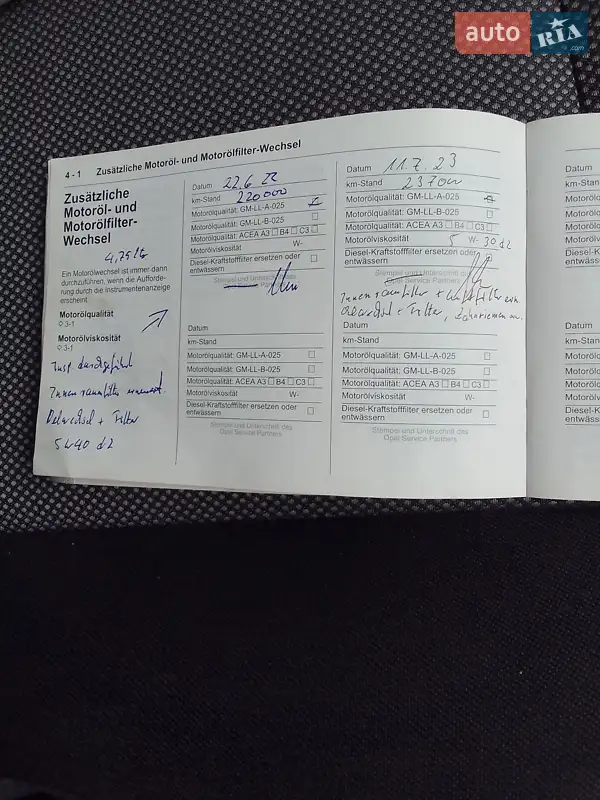 auto RIA .com
4 - 1 Zusätzliche Motoröl- und Motorölfilter-Wechsel
Zusätzliche
Motoröl- und
Motorölfilter-
Wechsel
4,75 ltr
Ein Motorölwechsel ist immer dann
durchzuführen, wenn die Aufforde-
rung durch die Instrumentenanzeige
erscheint.
Motorölqualität
3-1
Motorölviskosität
3-1
Insp. durchgeführt
Innenraumfilter erneuert.
Oelwechsel + Filter
5W40 d2
Datum 22.6.22
km-Stand 220000
Motorölqualität: GM-LL-A-025
Motorölqualität: GM-LL-B-025
Motorölqualität: ACEA A3 B4 C3
Motorölviskosität W-
Diesel-Kraftstofffilter ersetzen oder
entwässern
Stempel und Unterschrift des
Opel Service Partners
Datum
km-Stand
Motorölqualität: GM-LL-A-025
Motorölqualität: GM-LL-B-025
Motorölqualität: ACEA A3 B4 C3
Motorölviskosität W-
Diesel-Kraftstofffilter ersetzen oder
entwässern
Stempel und Unterschrift des
Opel Service Partners
Datum 11.7.23
km-Stand 237000
Motorölqualität: GM-LL-A-025
Motorölqualität: GM-LL-B-025
Motorölqualität: ACEA A3 B4 C3
Motorölviskosität 5 W- 30 d2
Diesel-Kraftstofffilter ersetzen oder
entwässern
Stempel und Unterschrift des
Opel Service Partners
Innenraumfilter + Luftfilter ern.
Oelwechsel + Filter, Zahnriemen
Datum
km-Stand
Motorölqualität: GM-LL-A-025
Motorölqualität: GM-LL-B-025
Motorölqualität: ACEA A3 B4 C3
Motorölviskosität W-
Diesel-Kraftstofffilter ersetzen oder
entwässern
Stempel und Unterschrift des
Opel Service Partners
Datum
km-Stand
Datum
km-Stand